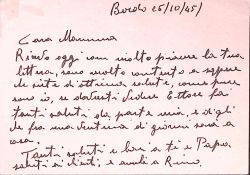 Bordo 25/10/45/
Cara Mamma
Ricevo oggi con molto piacere la tua
lettera, sono molto contento a sapere
che siete di ottima salute, come pure
sono io, se dovresti vedere Ettore fai
tanti saluti da parte mia, e digli
che fra una ventina di giorni sarà a
casa.
Tanti saluti e baci a te e Papà
saluti ai zii, e avoli a Rino.